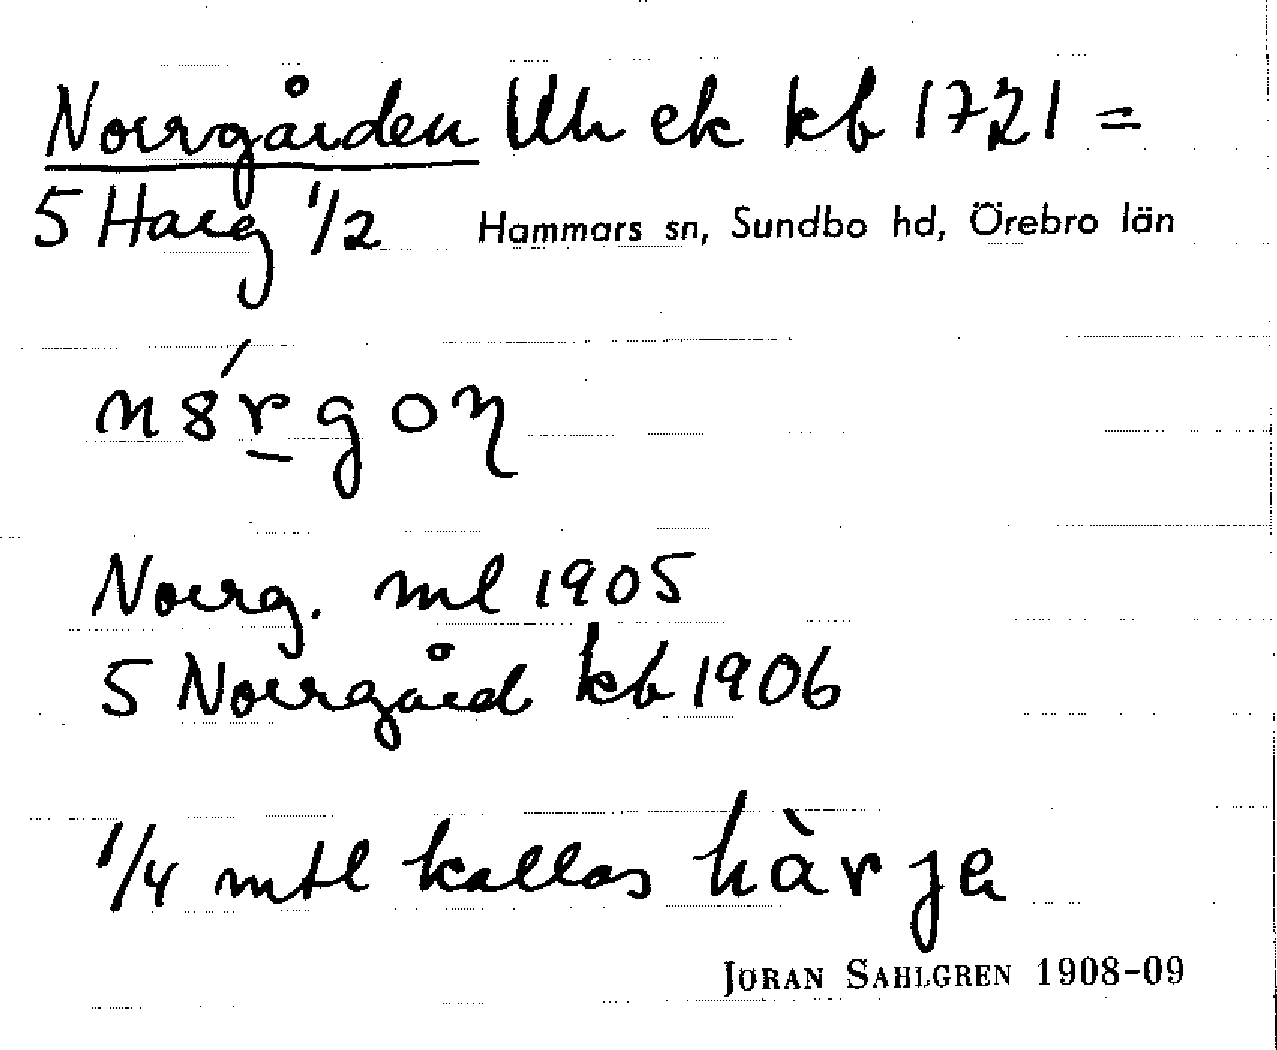 Norrgården Uh ek kb 1721 =
5 Harg 1/2 Hammars sn, Sundbo hd, Örebro län
n8́r̲goɳ
Norrg. ml 1905
5 Norrgård kb 1906
1/4 mtl kallas hàrja
JÖRAN SAHLGREN 1908-09